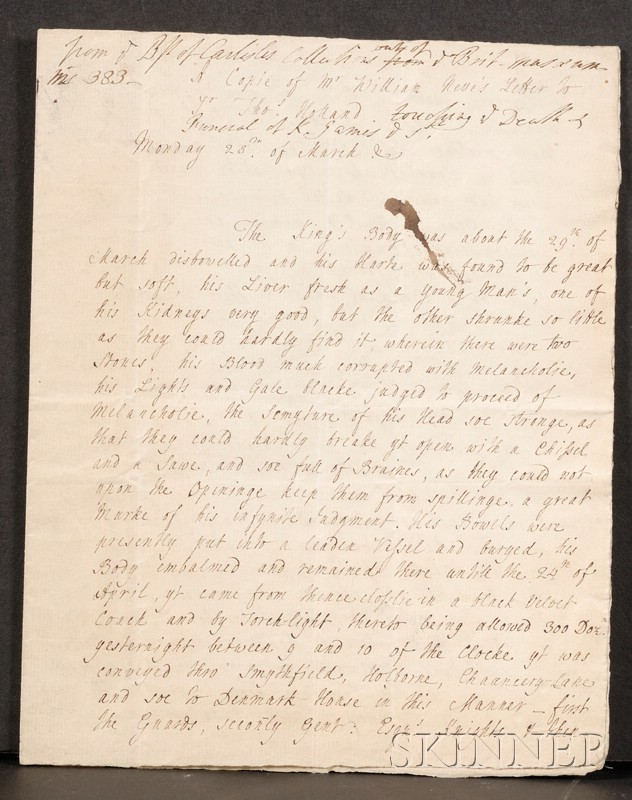 from ye Bps of Carlisles Collections out of from ye Brit. museum
ms 383 -
A Copie of Mr William Neve's Letter to
Sr Thos. Holland touching ye Death &
Funeral of K. James ye 1st
Monday 28th of March &c
The King's Body was about the 29th of
March disbowelled and his Harte was found to be great
but soft, his Liver fresh as a young Man's, one of
his Kidneys very good, but the other shrunke so little
as they could hardly find it, wherein there were two
Stones, his Blood much corrupted with Melancholie,
his Lights and Gale blacke judged to proceed of
Melancholie, the Semyture of his Head soe stronge, as
that they could hardly breake yt open with a Chissel
and a Sawe, and soe full of Braines, as they could not
upon the Openinge keep them from spillinge, a great
Marke of his infynite Judgment. His Bowels were
presently put into a leaden Vessel and buryed, his
Body embalmed and remained there untill the 24th of
April, yt came from thence closslie in a black Velvet
Coach and by Torchlight, thereto being allowed 300 Doz.
yesternight between 9 and 10 of the Clocke yt was
conveyed thro' Smythfield, Holborne, Chauncery-Lane
and soe to Denmark-House in this Manner - first
the Guards, seconly Gent: Esqrs. Knights & then
SKINNER